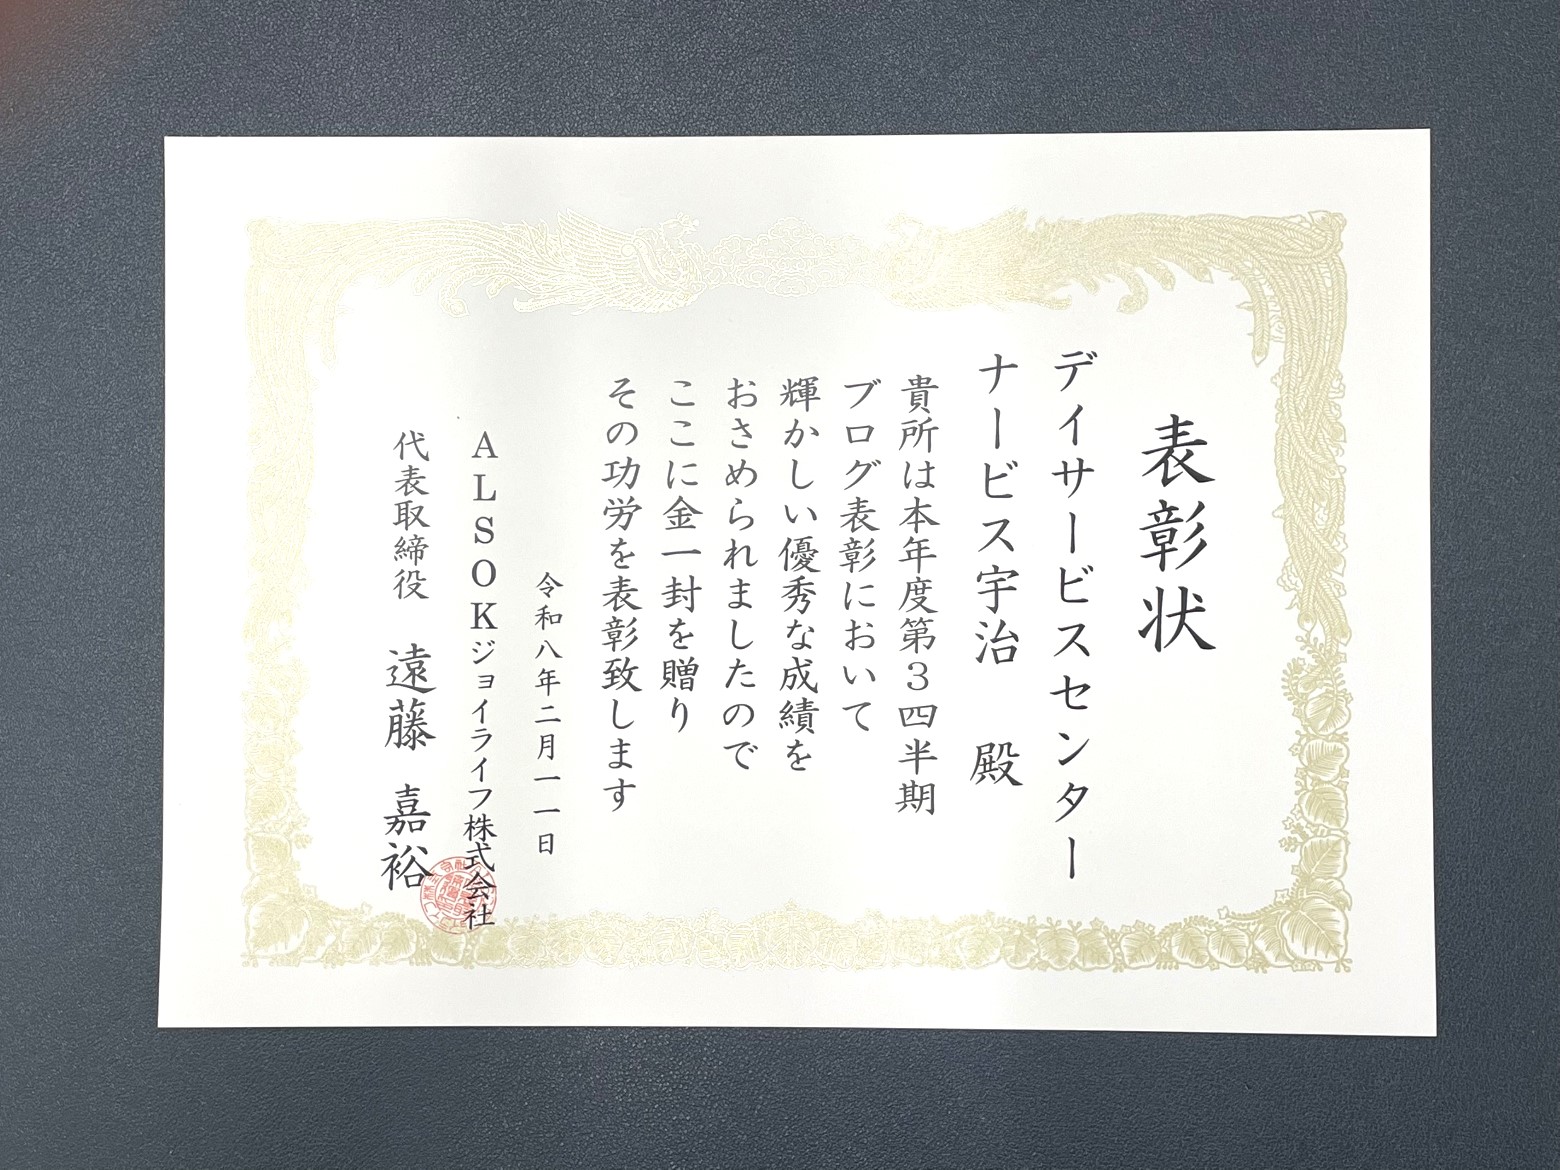 表彰状
デイサービスセンター
ナービス宇治 殿
貴所は本年度第３四半期
ブログ表彰において
輝かしい優秀な成績を
おさめられましたので
ここに金一封を贈り
その功労を表彰致します
令和八年二月一一日
ＡＬＳＯＫジョイライフ株式会社
代表取締役 遠藤 嘉裕